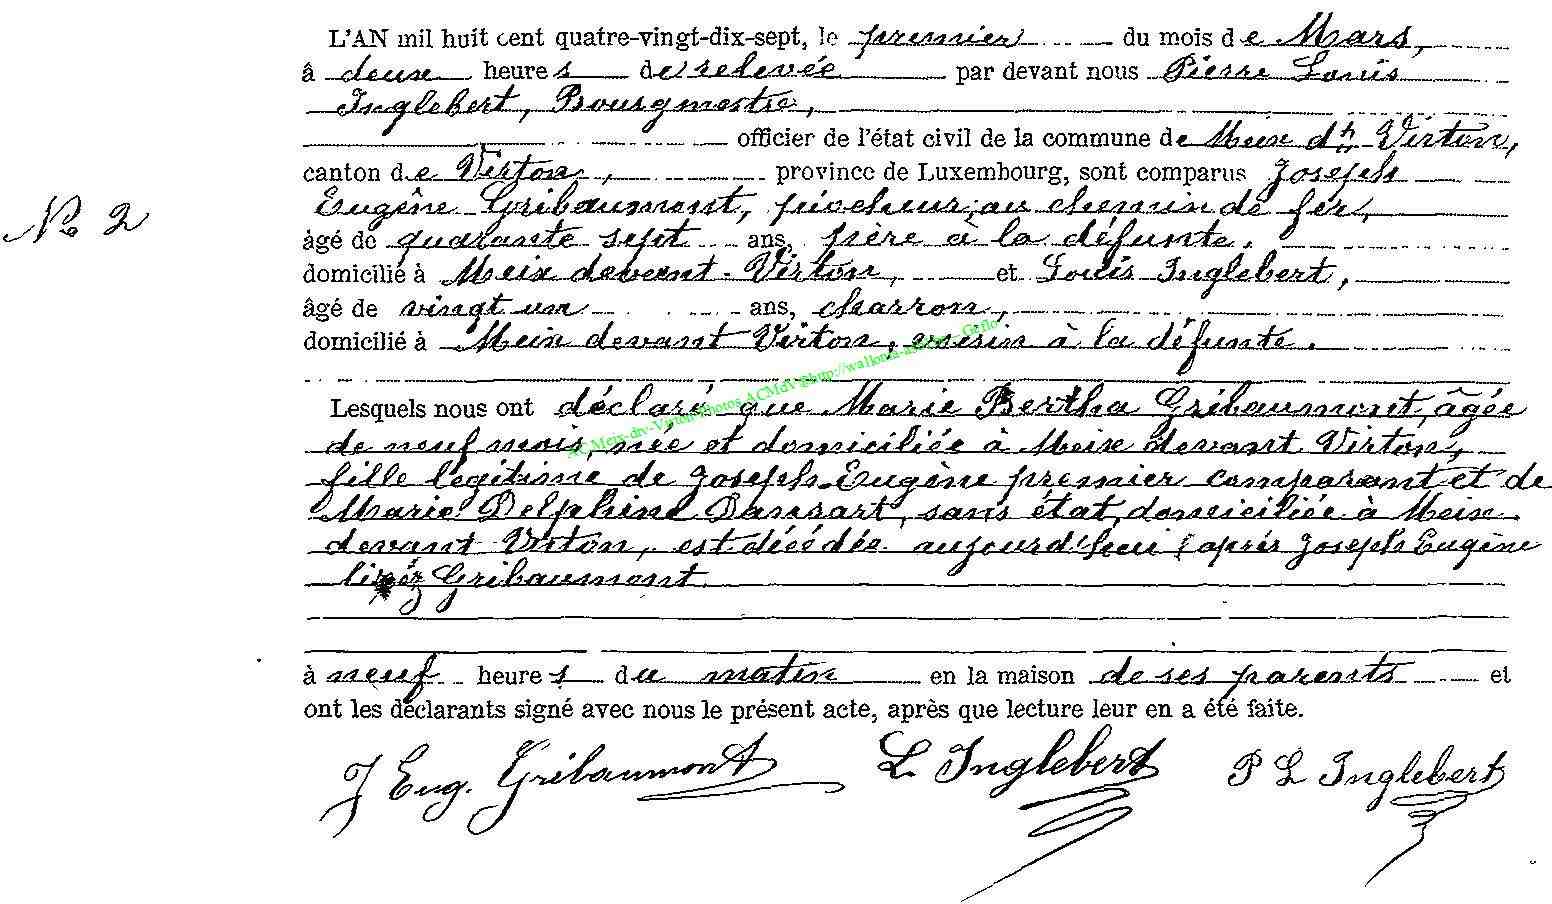 L'AN mil huit cent quatre-vingt-dix-sept, le premier du mois de Mars,
à deux heures de relevée par devant nous Pierre Louis
Inglebert, Bourgmestre,
officier de l'état civil de la commune de Meix dt Virton,
canton de Virton, province de Luxembourg, sont comparus Joseph
N° 2
Eugène Gribaumont, piocheur au chemin de fer,
âgé de quarante sept ans, père à la défunte.
domicilié à Meix devant-Virton, et Louis Inglebert,
âgé de vingt un ans, charron,
domicilié à Meix devant Virton, voisin à la défunte.
Lesquels nous ont déclaré que Marie Bertha Gribaumont, âgée
de neuf mois, née et domiciliée à Meix devant Virton,
fille légitime de Joseph-Eugène premier comparant et de
Marie Delphine Dansart, sans état, domiciliée à Meix
devant Virton, est décédée aujourd'hui (après Joseph Eugène
lisez Gribaumont
à neuf heures du matin en la maison de ses parents et
ont les déclarants signé avec nous le présent acte, après que lecture leur en a été faite.
J Eug. Gribaumont L. Inglebert P L Inglebert